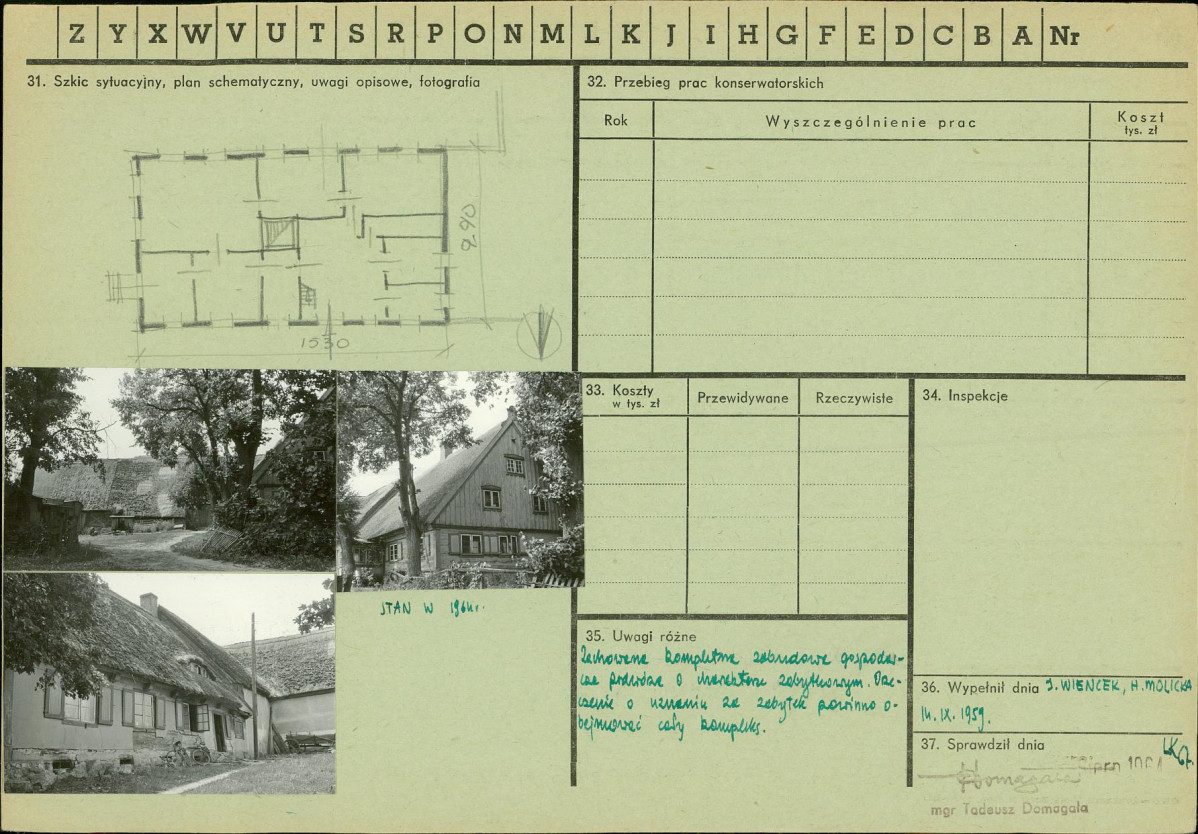 Z Y X W V U T S R P O N M L K J I H G F E D C B A Nr
31. Szkic sytuacyjny, plan schematyczny, uwagi opisowe, fotografia
990
1530
STAN W 1964r.
32. Przebieg prac konserwatorskich
Rok Wyszczególnienie prac Koszt
tys. zł
33. Koszty Przewidywane Rzeczywiste
w tys. zł
34. Inspekcje
35. Uwagi różne
Zachowana kompletna zabudowa gospodar-
cza podwórza o charakterze zabytkowym. Orze-
czenie o uznaniu za zabytek powinno o-
bejmować cały kompleks.
36. Wypełnił dnia J. WIENCEK, H. MOLICKA
14. IX. 1959.
37. Sprawdził dnia
Domagała
mgr Tadeusz Domagała